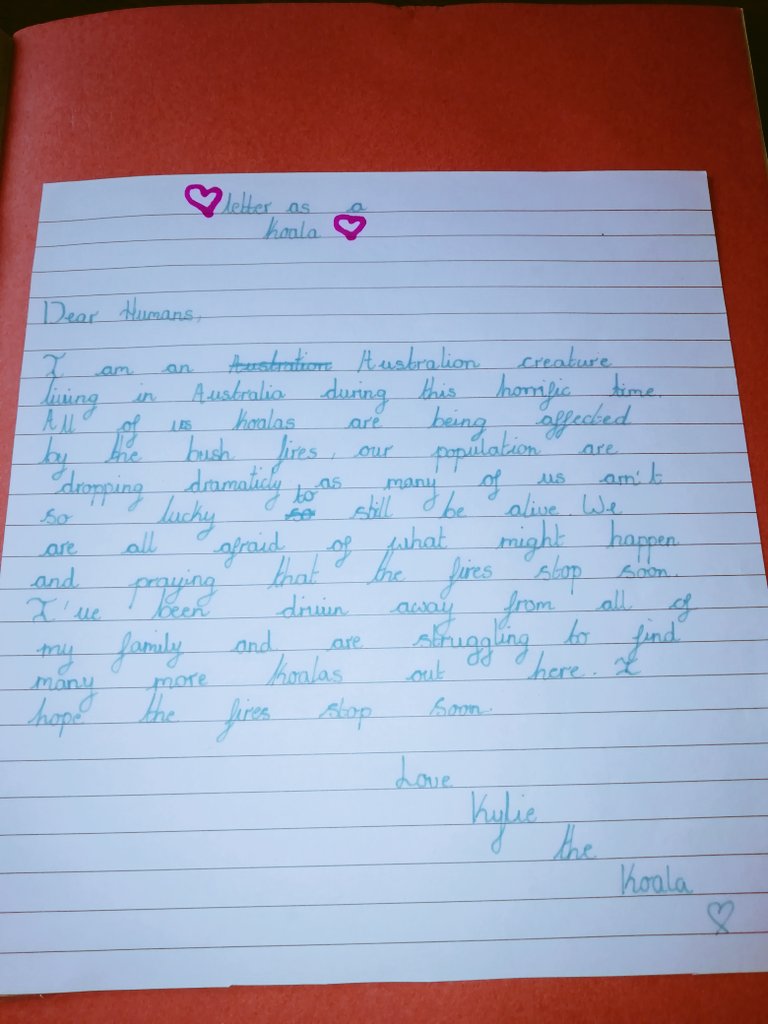 letter as a
koala
Dear Humans,
I am an Australion creature
living in Australia during this horrific time.
All of us koalas are being affected
by the bush fires, our population are
dropping dramaticly as many of us arn't
so lucky to still be alive. We
are all afraid of what might happen
and praying that the fires stop soon.
I've been drivin away from all of
my family and are struggling to find
many more koalas out here. I
hope the fires stop soon.
Love
Kylie
the
Koala